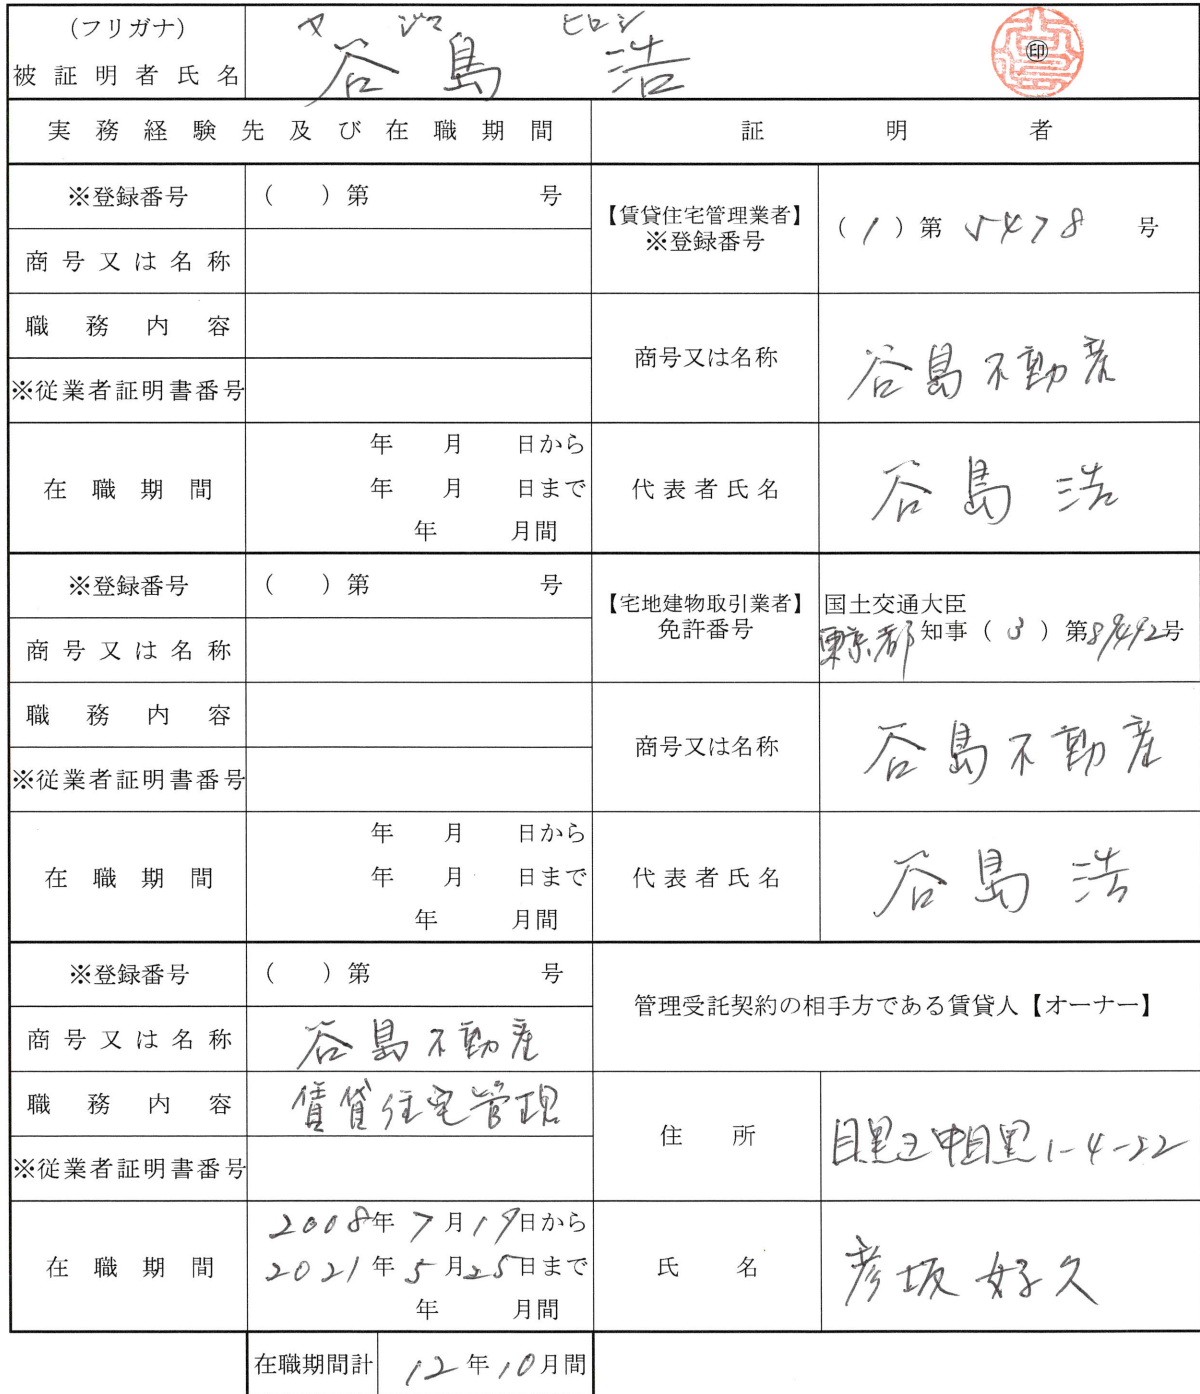 (フリガナ) ヤ ジマ ヒロシ
被証明者氏名 谷島 浩 ㊞
実務経験先及び在職期間 証明者
※登録番号 ( )第 号
商号又は名称
職務内容
※従業者証明書番号
在職期間 年 月 日から
年 月 日まで
年 月間
【賃貸住宅管理業者】
※登録番号 (1)第 5478 号
商号又は名称 谷島不動産
代表者氏名 谷島 浩
※登録番号 ( )第 号
商号又は名称
職務内容
※従業者証明書番号
在職期間 年 月 日から
年 月 日まで
年 月間
【宅地建物取引業者】
免許番号
国土交通大臣
東京都知事(3)第89492号
商号又は名称 谷島不動産
代表者氏名 谷島 浩
※登録番号 ( )第 号
商号又は名称 谷島不動産
職務内容 賃貸住宅管理
※従業者証明書番号
在職期間 2008年7月19日から
2021年5月25日まで
年 月間
管理受託契約の相手方である賃貸人【オーナー】
住所 目黒区中目黒1-4-22
氏名 彦坂 好久
在職期間計 12年10月間